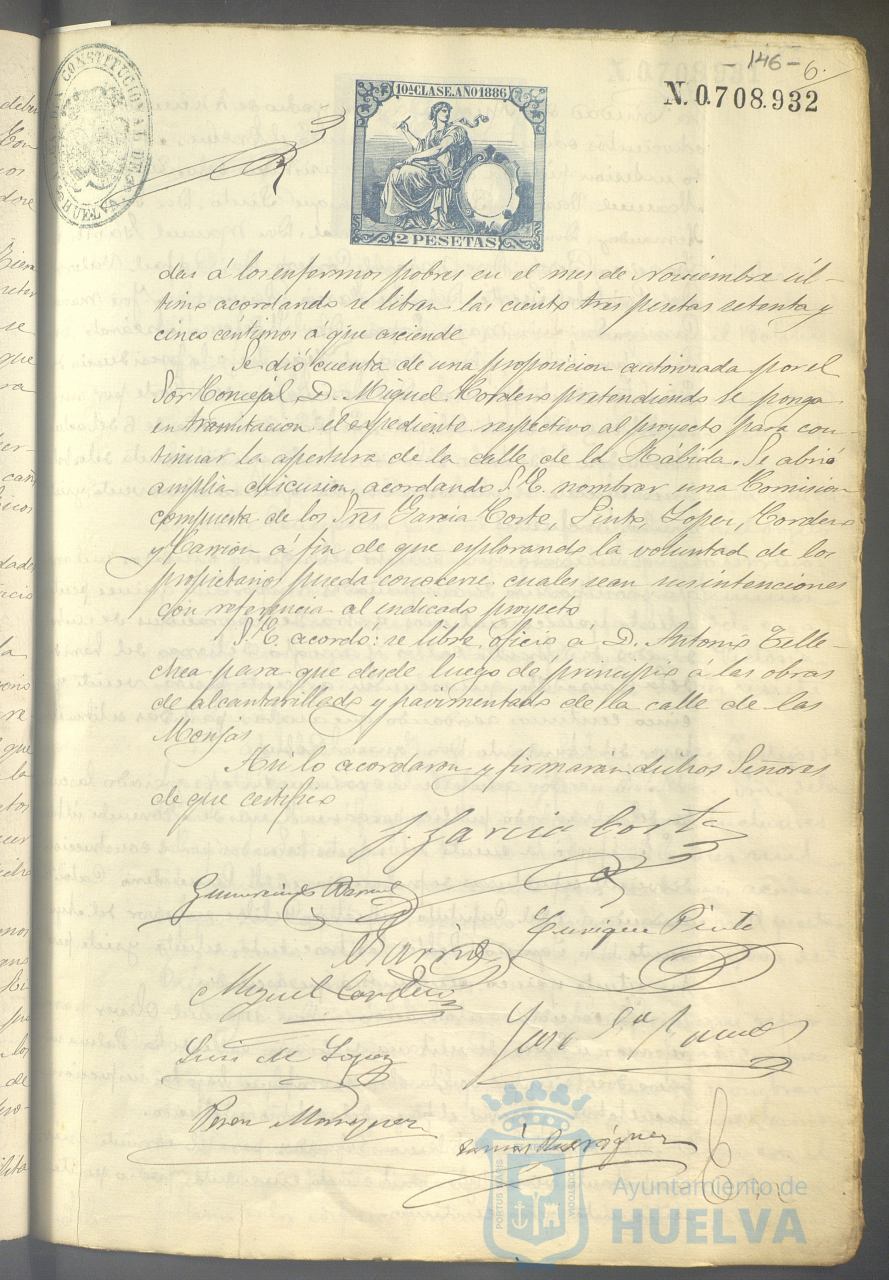 - 146 - 6.
N. 0.708.932
AYUNTAMIENTO CONSTITUCIONAL DE HUELVA
10ª CLASE. AÑO 1886
2 PESETAS
das á los enfermos pobres en el mes de Noviembre úl-
timo acordando se libran las ciento tres pesetas setenta y
cinco céntimos a que asciende
Se dió cuenta de una proposicion autorizada por el
Sor Concejal D. Miguel Cordero pretendiendo se ponga
en tramitacion el espediente respectivo al proyecto para con-
tinuar la apertura de la calle de la Rábida. Se abrió
amplia discusion, acordando S. E. nombrar una Comision
compuesta de los Sres Garcia Corte, Pinto, Lopez, Cordero
y Carrion á fin de que esplorando la voluntad de los
propietarios pueda conocerse cuales sean sus intenciones
con referencia al indicado proyecto
S. E. acordó: se libre oficio á D. Antonio Telle-
chea para que desde luego dé principio á las obras
de alcantarillado y pavimentado de la calle de las
Monjas
Asi lo acordaron y firmarán dichos Señores
de que certifico
J. Garcia Corte
Gumersindo
Enrique Pinto
Miguel Cordero
José
Luis M. Lopez
PORTUS MARIS
CUSTODIA
Ayuntamiento de
HUELVA